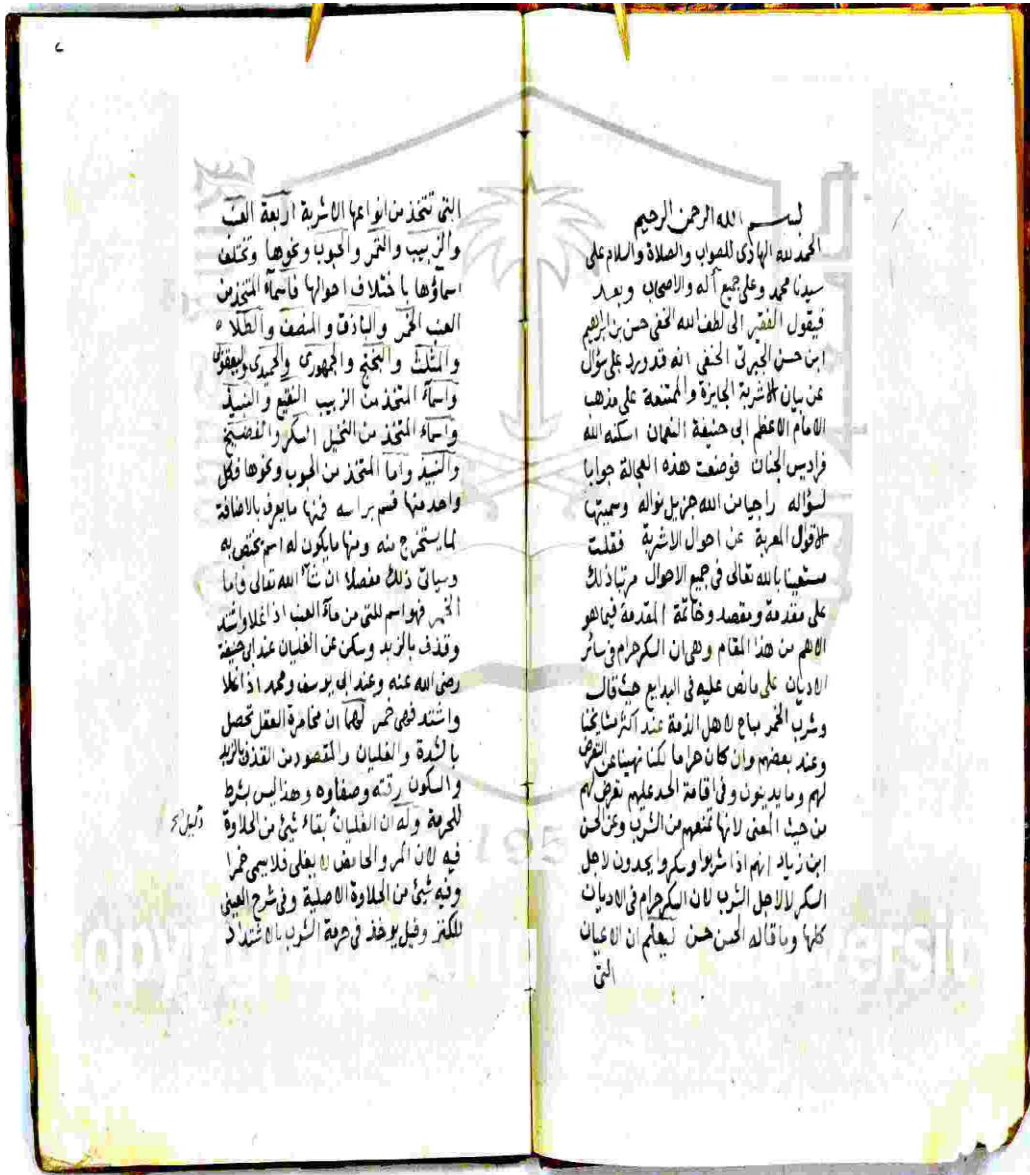 بسم الله الرحمن الرحيم
الحمد لله الهادى للصواب والصلاة والسلام على
سيدنا محمد وعلى جميع آله والاصحاب وبعد
فيقول الفقير الى لطف الله الخفى حسن بن ابراهيم
ابن حسن الجبرتى الحنفى انه قد ورد على سؤال
عن بيان الاشربة الجايزة والممتنعة على مذهب
الامام الاعظم ابى حنيفة النعمان اسكنه الله
فراديس الجنان فوضعت هذه العجالة جوابا
لسؤاله راجيا من الله جزيل نواله وسميتها
الاقوال المعربة عن احوال الاشربة فقلت
مستعينا بالله تعالى فى جميع الاحوال مرتبا ذلك
على مقدمة ومقصد وخاتمة المقدمة فيما هو
الاهم من هذا المقام وهى ان السكر حرام فى سائر
الاديان على ما نص عليه فى البدايع حيث قالت
وشرب الخمر مباح لاهل الذمة عند اكثر مشايخنا
وعند بعضهم وان كان حراما لكنا نهينا عن التعرض
لهم وما يدينون وفى اقامة الحد عليهم تعرض لهم
من حيث المعنى لانها تمنعهم من الشرب وعن الحسن
ابن زياد انهم اذا شربوا وسكروا يحدون لاجل
السكر لا لاجل الشرب لان السكر حرام فى الاديان
كلها وما قاله الحسن حسن ليعلم ان الاعيان
التى
٢
التى تتخذ من انواعها الاشربة اربعة العنب
والزبيب والتمر والحبوب ونحوها وتختلف
اسماؤها باختلاف احوالها فأسماء المتخذ من
العنب الخمر والباذق والمنصف والطلاء
والمثلث والبختج والجمهورى والحميدى واليعقوبى
واسماء المتخذ من الزبيب النقيع والنبيذ
واسماء المتخذ من النخيل السكر والفضيخ
والنبيذ واما المتخذ من الحبوب ونحوها فكل
واحد منها قسم براسه فمنها ما يعرف بالاضافة
لما يستخرج منه ومنها ما يكون له اسم يختص به
وسياتى ذلك مفصلا ان شاء الله تعالى فاما
الخمر فهو اسم للنى من ماء العنب اذا غلا واشتد
وقذف بالزبد وسكن عن الغليان عند ابى حنيفة
رضى الله عنه وعند ابى يوسف ومحمد اذا غلا
واشتد فهى خمر لهما ان مخامرة العقل تحصل
بالشدة والغليان والمقصود من القذف بالزبد
والسكون رقته وصفاؤه وهذا ليس بشرط
للحرمة وله ان الغليان بقاء شئ من الحلاوة
فيه لان المر والحامض لا يغلى فلا يسمى خمرا
وفيه شئ من الحلاوة الاصلية وفى شرح العينى
للكنز وقيل يوخذ فى حرمة الشرب بالاشتداد
دليل
195